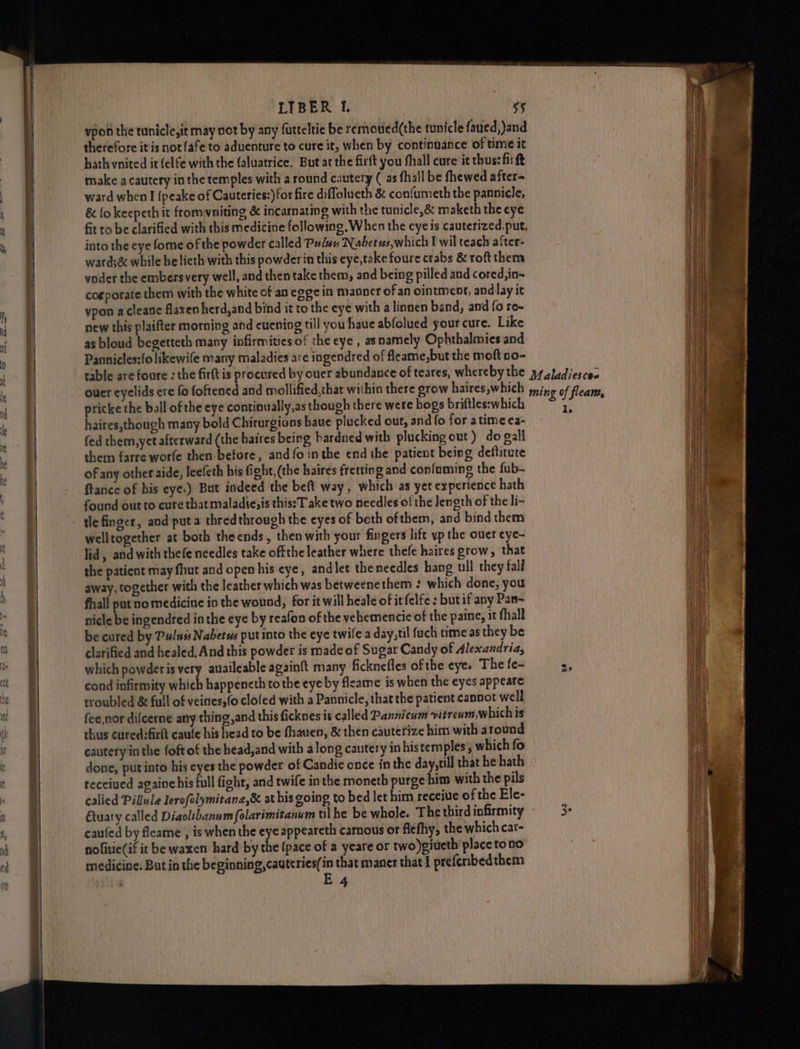 LIBER I. 55
vpon the tunicle,it may not by any futteltie be remoued(the tunicle ſaued,)and
therefore it is not ſafe to aduenture to cure it, when by continuance of time it
hath vnited it ſelfe with the ſaluatrice. But at the firſt you ſhall cure it thus: firſt
make a cautery in the temples with a round cautery ( as ſhall be ſhewed after-
ward when I ſpeake of Cauteries:)for fire diſſolueth & conſumeth the pannicle,
& ſo keepeth it from vniting & incarnating with the tunicle,& maketh the eye
fit to be clarified with this medicine following. When the eye is cauterized,put,
into the eye ſome of the powder called Puluis Nabetus,which I wil teach after-
ward;& while he lieth with this powder in this eye,take foure crabs & roſt them
vnder the embers very well, and then take them, and being pilled and cored,in-
corporate them with the white of an egge in manner of an ointment, and lay it
vpon a cleane flaxen herd,and bind it to the eye with a linnen band, and ſo re-
new this plaiſter morning and euening till you haue abſolued your cure. Like
as bloud begetteth many infirmities of the eye , as namely Ophthalmies and
Pannicles:ſo likewiſe many maladies are ingendred of fleame,but the moſt no-
table are foure : the firſt is procured by ouer abundance of teares, whereby the
Maladies co-
ouer eyelids are ſo ſoftened and mollified,that within there grow haires,which
ming of fleam,
pricke the ball of the eye continually,as though there were hogs briſtles:which
1.
haires,though many bold Chirurgions haue plucked out, and ſo for a time ea-
ſed them,yet afterward (the haires being hardned with plucking out ) do gall
them farre worſe then before, and ſo in the end the patient being deſtitute
of any other aide, leeſeth his ſight,(the haires fretting and conſuming the ſub-
ſtance of his eye.) But indeed the beſt way, which as yet experience hath
found out to cure that maladie,is this:Take two needles of the length of the li-
tle finger, and put a thred through the eyes of both of them, and bind them
well together at both the ends, then with your fingers lift vp the ouer eye-
lid, and with theſe needles take off the leather where theſe haires grow, that
the patient may ſhut and open his eye, and let the needles hang till they fall
away, together with the leather which was betweene them : which done, you
ſhall put no medicine in the wound, for it will heale of it ſelfe : but if any Pan-
nicle be ingendred in the eye by reaſon of the vehemencie of the paine, it ſhall
be cured by Puluis Nabetus put into the eye twiſe a day,til ſuch time as they be
clarified and healed. And this powder is made of Sugar Candy of Alexandria,
which powder is very auaileable againſt many ſickneſſes of the eye. The ſe-
2.
cond infirmity which happeneth to the eye by fleame is when the eyes appeare
troubled & full of veines,ſo cloſed with a Pannicle, that the patient cannot well
ſee,nor diſcerne any thing,and this ſicknes is called Pannicum vitreum,which is
thus cured:firſt cauſe his head to be ſhauen, & then cauterize him with a round
cautery in the ſoft of the head,and with a long cautery in his temples , which ſo
done, put into his eyes the powder of Candie once in the day,till that he hath
receiued againe his full ſight, and twiſe in the moneth purge him with the pils
called Pillule Ieroſolymitana,& at his going to bed let him receiue of the Ele-
ctuary called Diaolibanum ſolarimitanum til he be whole. The third infirmity
3.
cauſed by fleame , is when the eye appeareth carnous or fleſhy, the which car-
noſitie(if it be waxen hard by the ſpace of a yeare or two)giueth place to no
medicine. But in the beginning,cauteries(in that maner that I preſcribed them
E 4